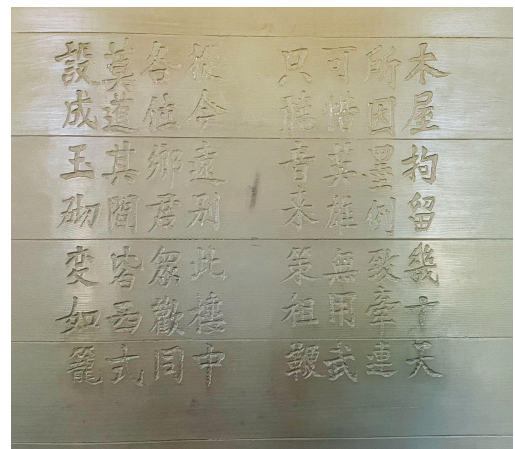 木屋拘留幾十天
所因墨例致牽連
可惜英雄無用武
只聽音來策祖鞭
從今遠別此樓中
各位鄉君眾歡同
莫道其間皆西式
設成玉砌变如籠